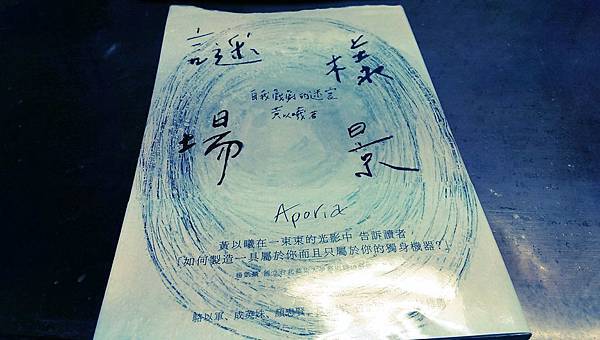 謎樣
場景
自我戲劇的迷宮
黃以曦 著
Aporia
黃以曦在一束束的光影中 告訴讀者
「如何製造一具屬於你而且只屬於你的獨身機器?」
楊凱麟
駱以軍、成英姝、顏忠賢、